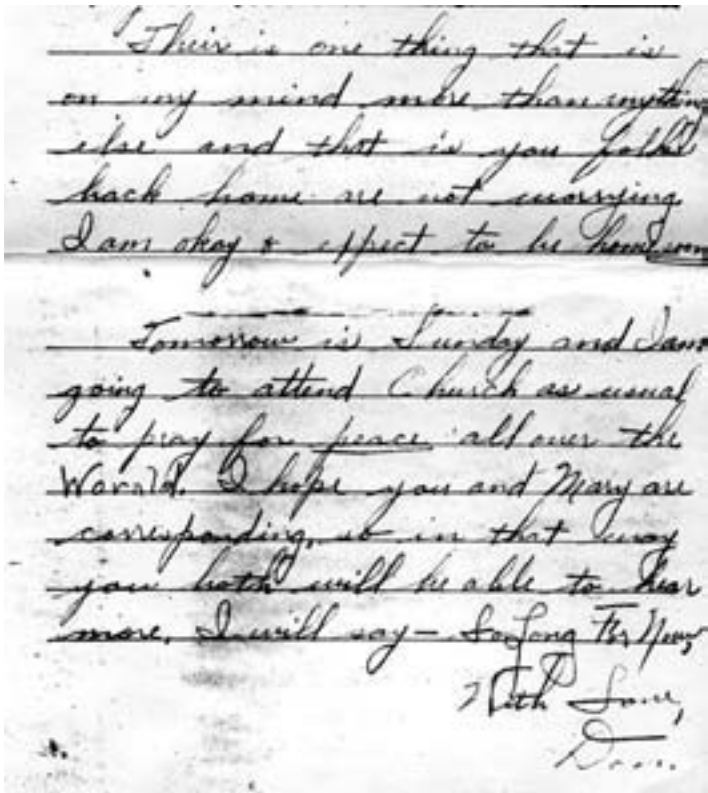 Their is one thing that is
on my mind more than anything
else and that is you folks
back home are not worrying.
I am okay & expect to be home soon
Tomorrow is Sunday and I am
going to attend Church as usual
to pray for peace all over the
Wornld. I hope you and Mary are
corresponding, so in that way
you both will be able to hear
more. I will say - So Long For Now,
With Love,